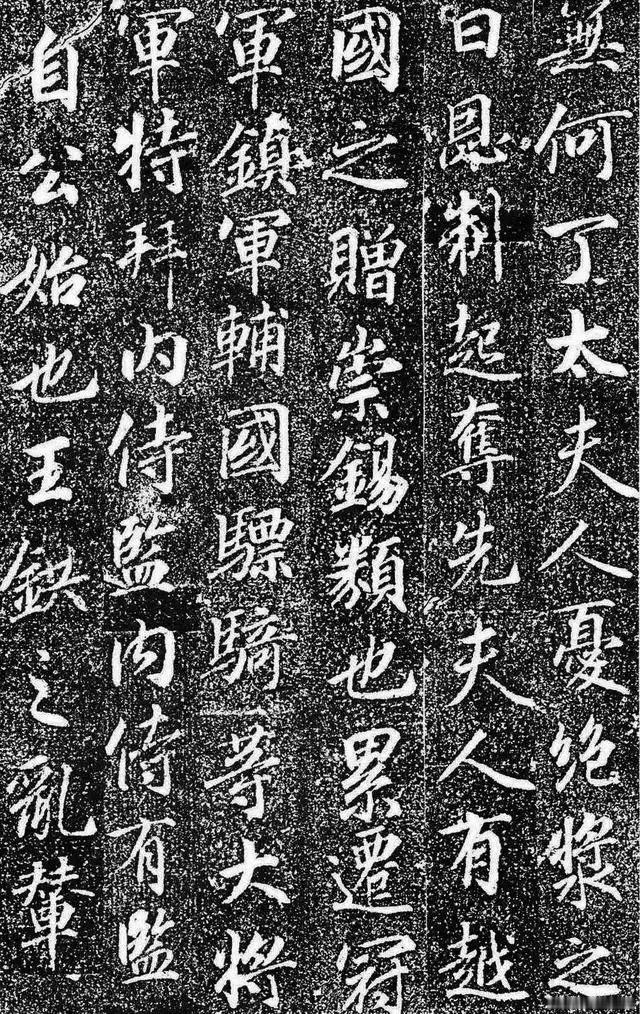 無何丁太夫人憂絶漿之
日恩制起奪先夫人有越
國之贈崇錫類也累遷冠
軍鎮軍輔國驃騎等大將
軍特拜內侍監內侍有監
自公始也王鉷之亂輦